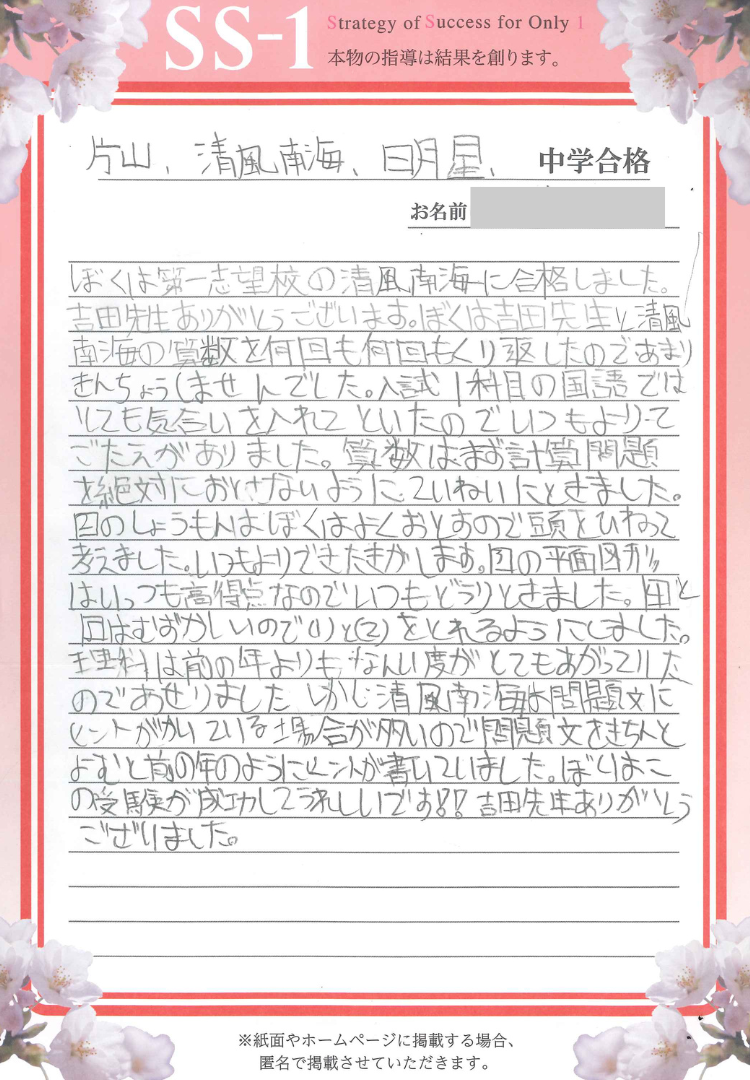 SS-1
Strategy of Success for Only 1
本物の指導は結果を創ります。
片山、清風南海、明星、中学合格
お名前
ぼくは第一志望校の清風南海に合格しました。
吉田先生ありがとうございます。ぼくは吉田先生と清風
南海の算数を何回も何回もくり返したのであまり
きんちょうしませんでした。入試1科目の国語では
とても気合いを入れてといたのでいつもよりて
ごたえがありました。算数はまず計算問題
を絶対におとさないようにていねいにときました。
四のしょうもんはぼくはよくおとすので頭をひねって
考えました。いつもよりできたきがします。四の平面図形
はいつも高得点なのでいつもどうりときました。
回はむずかしいので(1)と(2)をとれるようにしました。
理科は前の年よりもなんい度がとてもあがっていた
のであせりました しかし清風南海は問題文に
ヒントがかいている場合が多いので問題文をきちんと
よむと前の年のようにヒントが書いていました。ぼくはこ
の受験が成功してうれしいです!! 吉田先生ありがとう
ございました。
※紙面やホームページに掲載する場合、
匿名で掲載させていただきます。